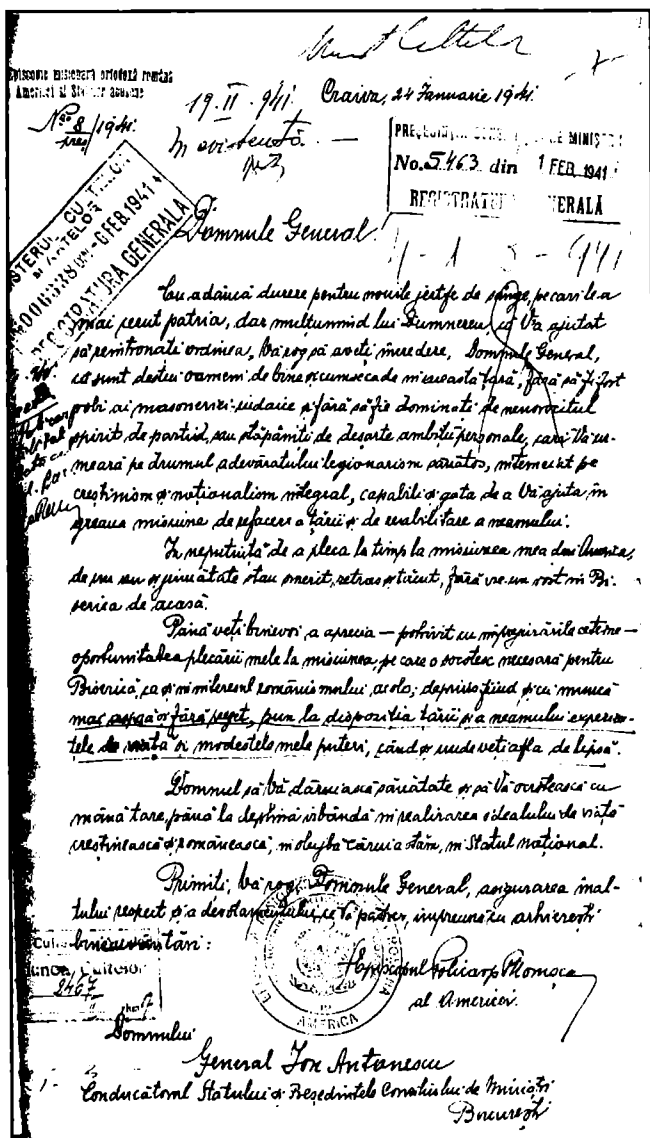 Episcopia misionară ortodoxă română
a Americei
No 8/1941
pres
19.II.941.
Craiva, 24 Ianuarie 1941.
PREȘEDINȚIA DE MINIȘTRI
No. 5463 din 1 FEB. 1941
REGISTRATURA GENERALĂ
MINISTERUL CULTELOR
ȘI ARTELOR
FEB. 1941
REGISTRATURA GENERALA
Domnule General,
Cu adâncă durere pentru nouile jertfe de sânge, pe cari le-a
mai cerut patria, dar mulțumind lui Dumnezeu, că V'a ajutat
să reintronați ordinea, Vă rog să aveți încredere, Domnule General,
că sunt destui oameni de bine și cumsecade în această țară, fără să fi fost
robi ai masoneriei iudaice și fără să fie dominați de nenorocitul
spirit de partid, sau stăpâniți de deșarte ambiții personale, cari Vă ur-
mează pe drumul adevăratului legionarism sănătos, întemeiat pe
creștinism și naționalism integral, capabili și gata de a Vă ajuta în
greaua misiune de refacere a țării și de reabilitare a neamului.
În neputință de a pleca la timp la misiunea mea din America,
de un an și jumătate stau smerit, retras și tăcut, fără vre-un rost în Bi-
serica de acasă.
Până veți binevoi a aprecia — potrivit cu împrejurările externe —
oportunitatea plecării mele la misiunea, pe care o socotesc necesară pentru
Biserică, ca și în interesul românismului acolo; deprins fiind și cu munca
mai aspră și fără preget, pun la dispoziția țării și a neamului experien-
țele de viață și modestele mele puteri, când și unde veți afla de lipsă.
Domnul să Vă dăruiască sănătate și să Vă ocrotească cu
mâna tare, până la deplina izbândă în realizarea idealului de viață
creștinească și românească, în slujba căruia stăm, în Statul național.
Primiți, Vă rog, Domnule General, asigurarea înal-
tului respect și a devotamentului, ce Vă păstrez, împreună cu arhierești
binecuvântări:
Episcopul Policarp Morușca
al Americei.
AMERICA
Cultelor
2467
Domnului
General Ion Antonescu
Conducătorul Statului și Președintele Consiliului de Miniștri
București